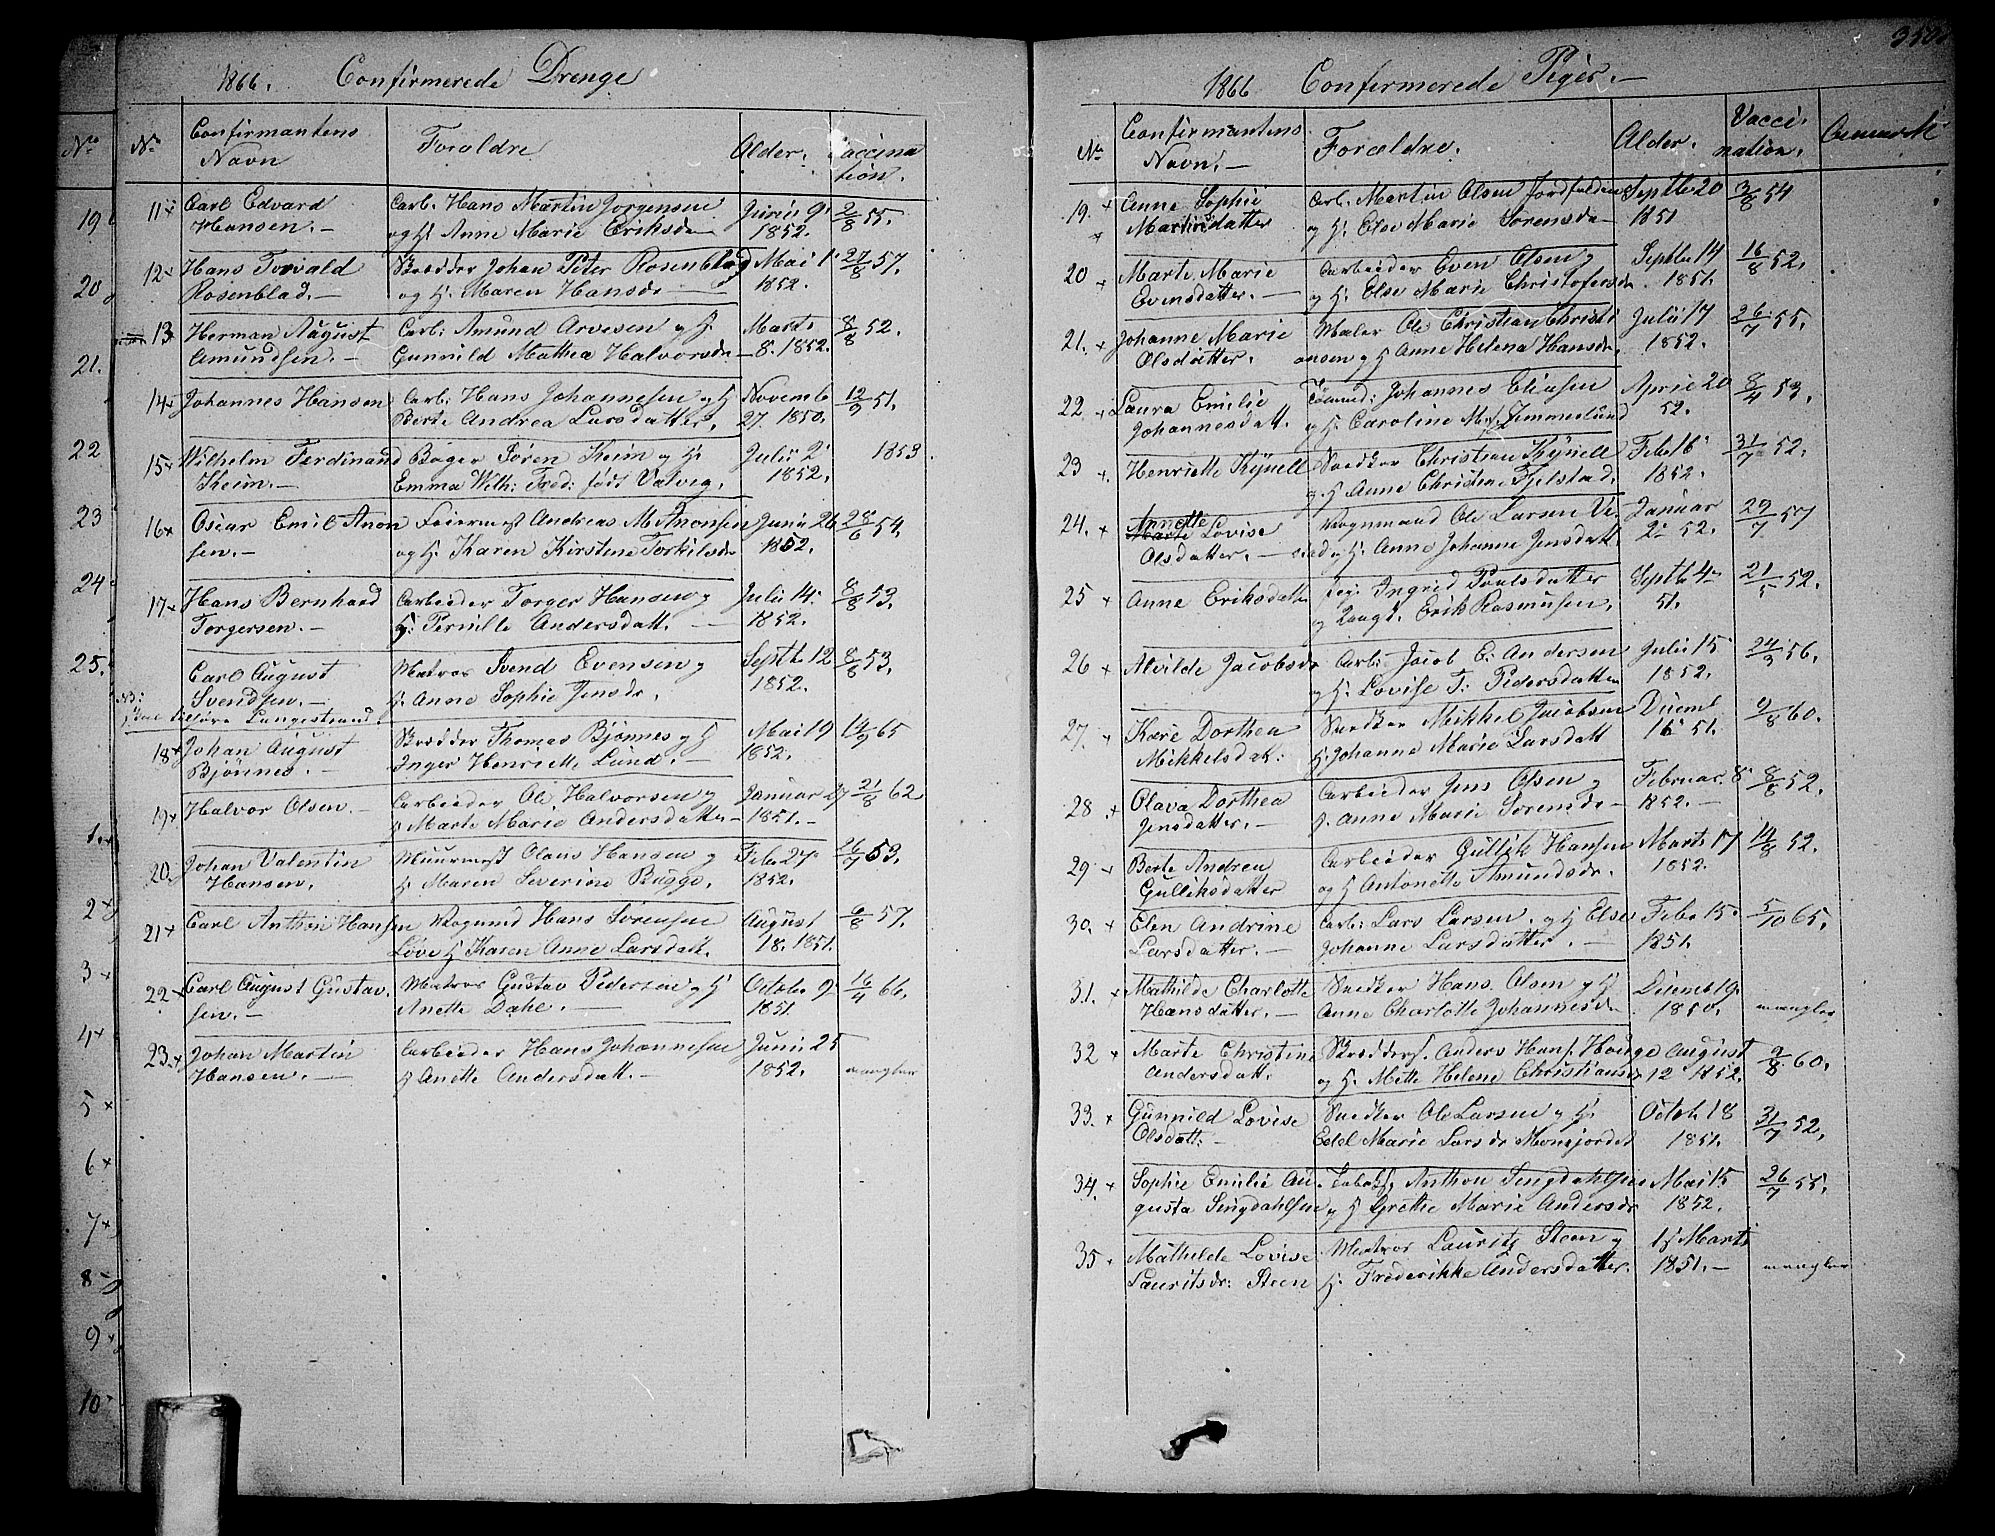 1866. Confirmerede Drenge
No Confirmantens Navn Foræ̈ldre Alder. Vaccination.
11 Carl Edvard Arb. Hans Martin Jorgensen Junii 9 2/8 55.
Hansen. — og H. Anne Marie Eriksdr 1852.
12 Hans Torvald Skrædder Johan Peter Rosenblad Mai 1 27/8 57.
Rosenblad. — og H. Maren Hansdr 1852.
13 Herman August Arb: Amund Arvesen og H. Marts 8/8 52.
Amundsen. — Gunnild Mathea Halvorsdr 8. 1852.
14 Johannes Hansen Arb: Hans Johannesen og H Novemb 12/9 51.
Berte Andrea Larsdatter. 27. 1850.
15 Wilhelm Ferdinand Bager Søren Keim og H. Julii 2 1853
Keim. — Emma Wilh: Fred: født Valvig. 1852.
16 Oscar Emil Anon Feiermest Andreas M. Anonsen Junii 26 28/6 54.
sen. — og H. Karen Kirstine Torkilsdr 1852.
17 Hans Bernhard Arbeider Torger Hansen og Julii 14. 8/8 53.
Torgersen. — H. Pernille Andersdatt. 1852.
Carl August Matros Svend Evensen og Septb. 12 8/8 53.
Svendsen. — H. Anne Sophie Jensdr. 1852.
NB: skal tilføre Langestrand
18 Johan August Skrædder Thomas Bjønnes og H Mai 19 14/9 65
Bjønnes. — Inger Henriette Lund. — 1852.
19 Halvor Olsen. — Arbeider Ole Halvorsen og Januar 27 21/8 62
H Marte Marie Andersdatter — 1851. —
20. Johan Valentin Muurmest Olaus Hansen og Feb. 27 26/7 53.
Hansen. H Maren Severine Bugge. 1852.
21 Carl Anthon Hansen Vognmd Hans Sørensen August 6/8 57.
Løve H Karen Anne Larsdatt. 18. 1851.
22 Carl August Gustav. Matros Gustav Pedersen og H Octobr 9 16/4 66.
sen. — Anette Dahl. — 1851.
23. Johan Martin Arbeider Hans Johannesen Junii 25
Hansen. — H Anette Andersdatt. — 1852. mangler
No
19
20
21.
22
23
24
25.
1.
2
3
4
5
6
7
8
9
10
1866 Confirmerede Piger. —
No Confirmantens Navn. — Forældre. Alder. Vaccination. Anmærk
19. Anne Sophie Arb. Martin Olsen Jordfalden Septb 20 3/8 54
Martinsdatter og H. Else Marie Sorensdr 1851
20 Marte Marie Arbeider Even Olsen og Septbr 14 16/8 52.
Evensdatter. — H. Else Marie Christofersdr 1851.
21. Johanne Marie Maler Ole Christian Christi Julii 17 26/7 55.
Olsdatter. ansen og H Anne Helena Hansdr. 1852.
22 Laura Emilie Tømmd: Johannes Eliasen April 20 8/4 53.
Johannesdatt. og H. Caroline Mo. Semmerlund 52.
23 Henriette Kynell Snedker Christian Kynell Feb. 16 31/7 52.
og H Anne Christine Fjelstad. 1852.
24. Annette Vognmand Ole Larsen Januar 29/7 57
Marte Lovise
Olsdatter. — og H. Anne Johanne Jensdatt. 2 52.
25 Anne Eriksdatt Pige Ingrid Paulsdatter Septb 4 21/5 52.
og Ungk. Erik Rasmusen. 51.
26 Alvilde Jacobsdr Arb: Jacob E: Andersen Julii 15 24/3 56.
og H. Lovise T: Pedersdatter 1852.
27. Kare Dorthea Snedker Mikkel Jacobsen Decemb 9/8 60.
Mikkelsdatt: H. Johanne Marie Larsdatt 16 51.
28 Olava Dorthea Arbeider Jens Olsen og Februar. 8 8/8 52.
Jensdatter. — H. Anne Marie Sorensdr — 1852. —
29 Berte Andrea Arbeider Gullik Hansen Marts 17 14/8 52.
Gulliksdatter og H Antonette Amundsdr. 1852.
30. Elen Andrine Arb: Lars Larsen. og H Else Feb. 15 5/10 65.
Larsdatter. — Johanne Larsdatter. — 1851.
31. Mathilde Charlotte Snedker Hans Olsen og H Decemb 19.
Hansdatter. — Anne Charlotte Johannesdr 1850. mangler
32 Marte Christine Skrædders. Anders Hans. Houge August 9/8 60.
Andersdatt. og H. Mette Helene Christiansdr 12 1852.
33. Gunnild Lovise Snedker Ole Larsen og H. Octob 18 31/7 52.
Olsdatt. — Edel Marie Larsdr Moensjordet 1851.
34. Sophie Emilie Au- Anthon Singdahlsen Mai 15 26/7 55.
gusta Singdahlsen og H Grethe Marie Andersdr 1852.
35 Mathilde Lovise Matros Lauritz Steen og 14 Marts
Lauritsdr: Steen H. Frederikke Andersdatter. 1851. — mangler